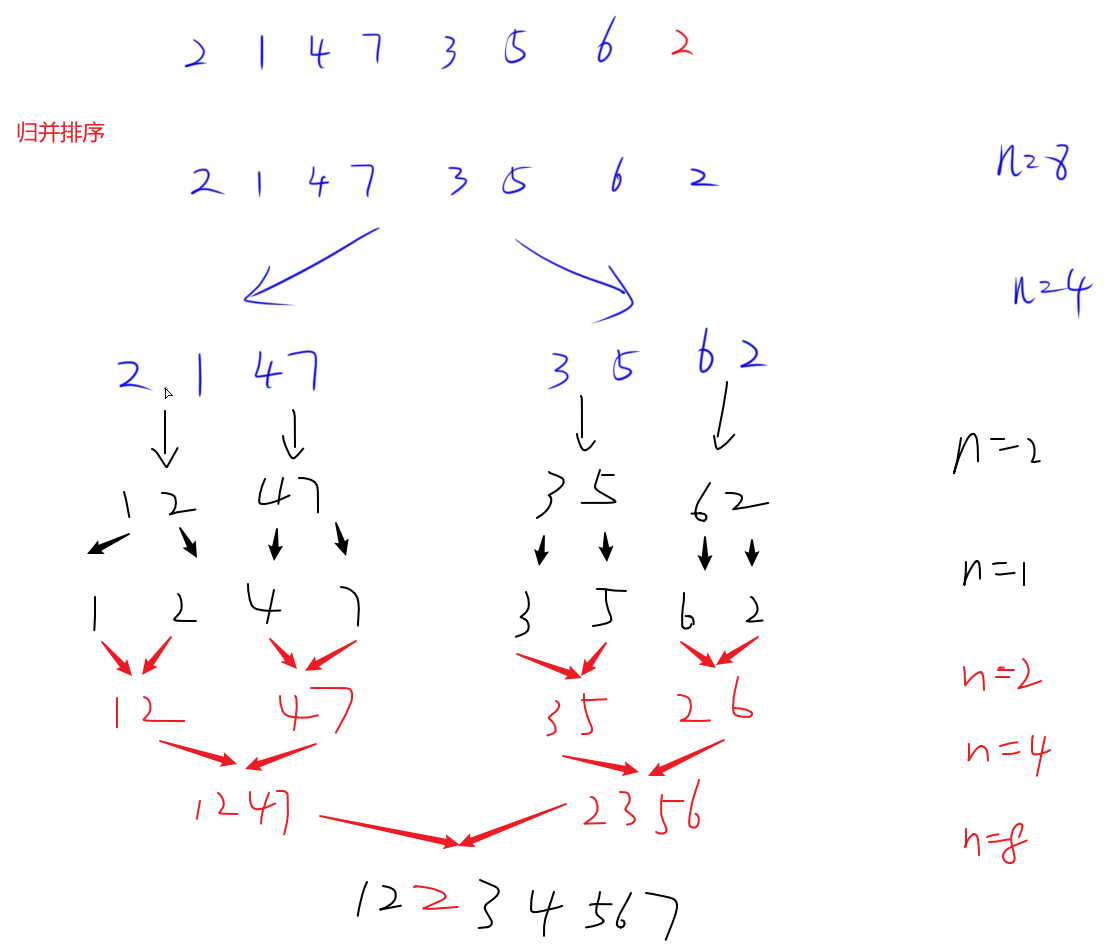 2 1 4 7 3 5 6 2
归并排序
2 1 4 7 3 5 6 2 n=8
n=4
2 1 4 7 3 5 6 2
1 2 4 7 3 5 6 2 n=2
1 2 4 7 3 5 6 2 n=1
1 2 4 7 3 5 2 6 n=2
n=4
1 2 4 7 2 3 5 6
n=8
1 2 2 3 4 5 6 7